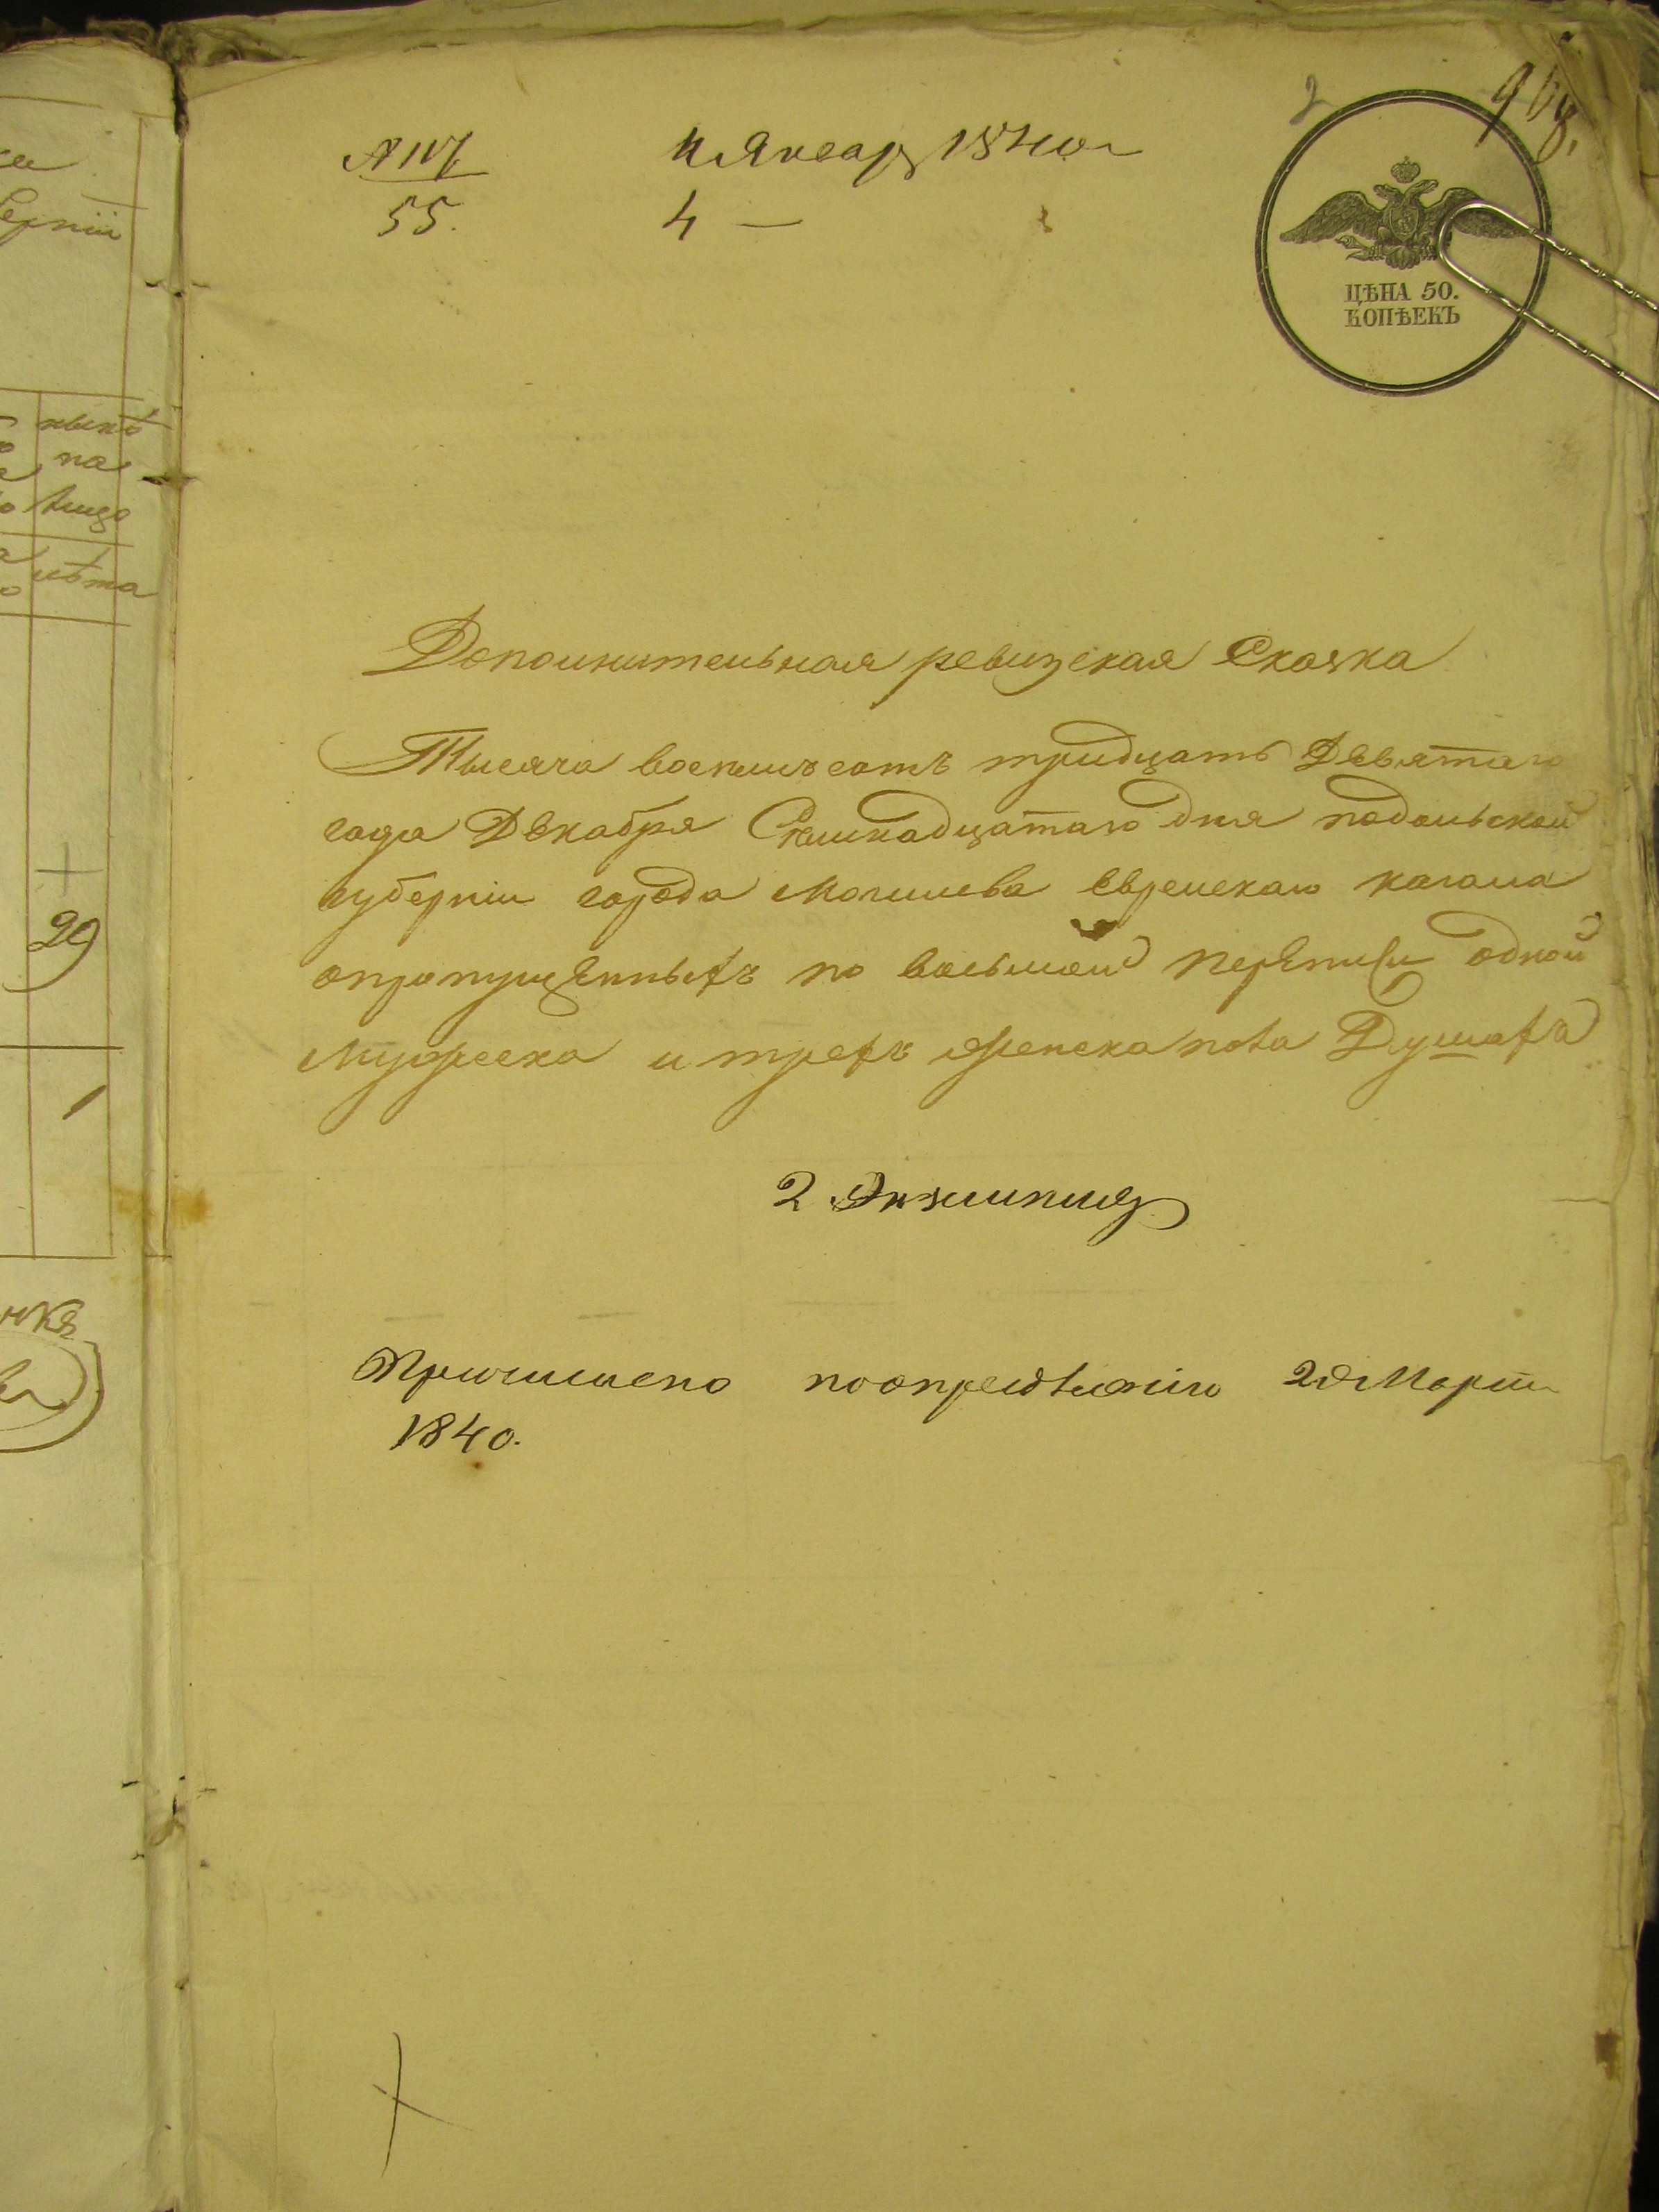 55.
4 —
ЦѢНА 50.
КОПѢЕКЪ
Дополнительная ревизская Сказка
Тысяча восемьсотъ тридцать Девятаго
года Декабря Семнадцатаго дня подольской
губерніи города Могилева Еврейскаго кагала
опропущенныхъ по восьмой переписи одной
Мужеска и трехъ женска пола Душахъ
2 Экземпляр
Причислено по опредѣленію Марта
1840.
ныне
на
лицо
лѣта
29
1